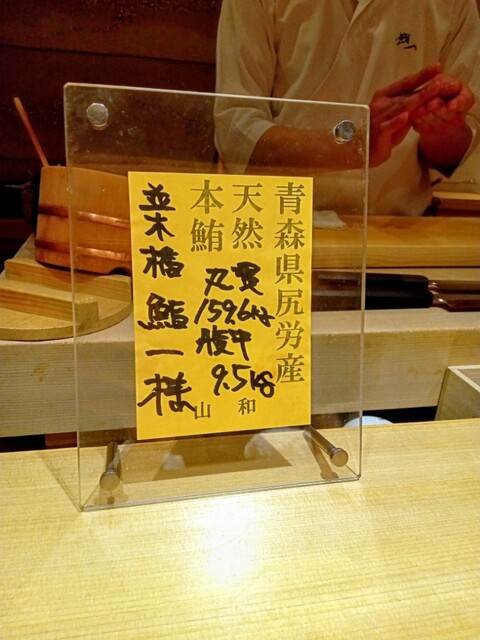 青森県尻労産
天然
本鮪
丸
159.6kg
腹中
9.5kg
山和
並木橋 鮨一様